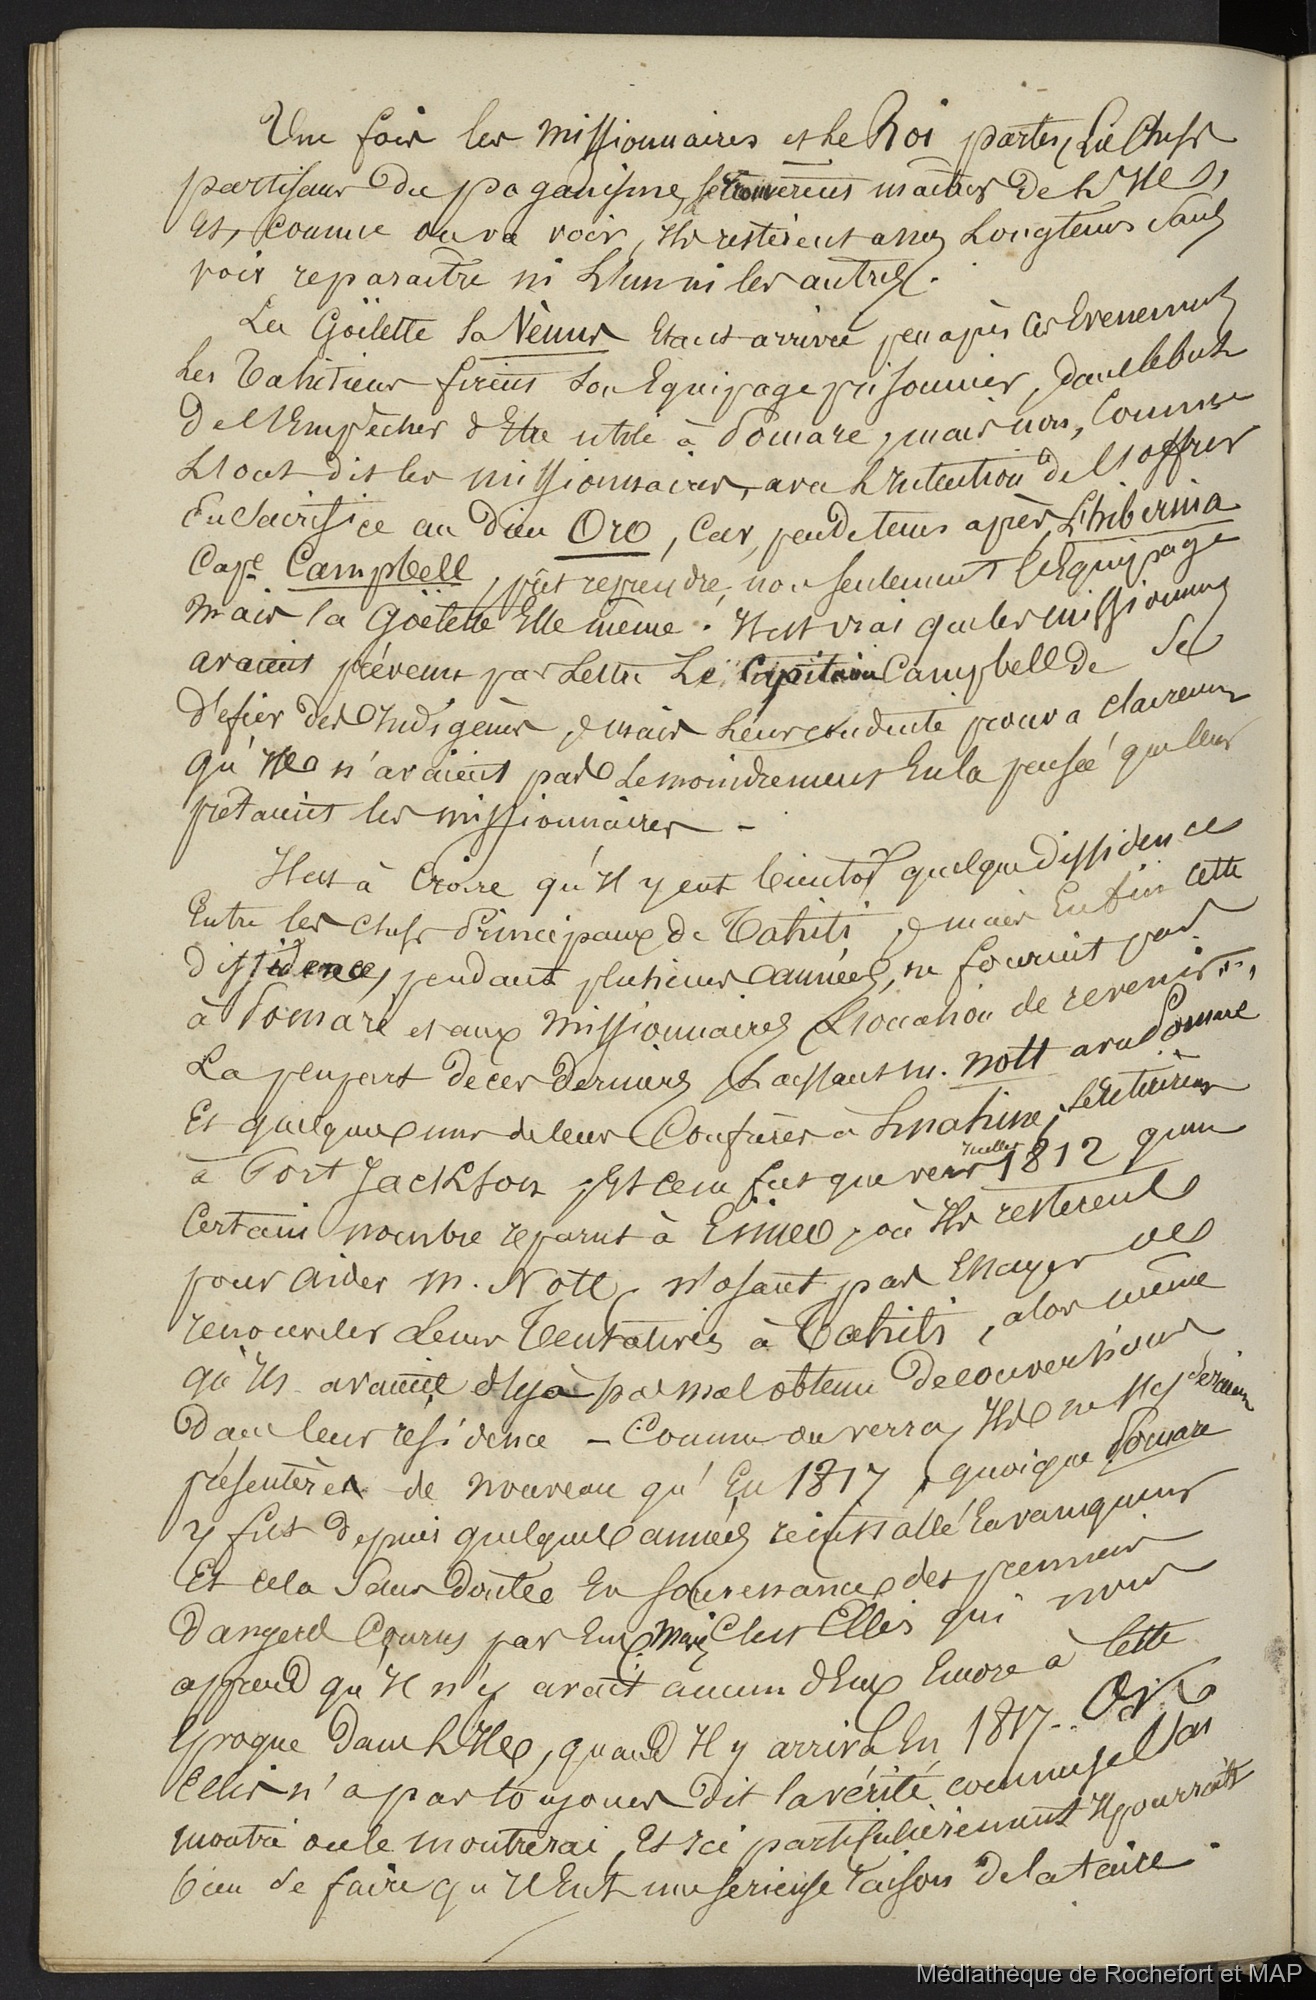 Une fois les missionnaires et le Roi partis, les chefs
partisans du paganisme, se trouvèrent maîtres de l'Ile,
et, comme on va voir, ils restèrent assez longtems sans
voir reparaître ni l'un ni les autres.
La Goëlette la Vènus étant arrivée peu après ces Evenements
les Tahitiens firent son Equipage prisonnier, dans le but
de l'Empêcher d'Etre utile à Pomare, mais non, comme
l'ont dit les missionnaires, avec l'intention de l'offrir
en sacrifice au dieu Oro, car, peu de tems après, l'hibernia
Cape Campbell, put reprendre, non seulement l'Equipage
mais la Goëlette Elle même. Il est vrai que les missionnaires
avaient prévenu par lettre le Capitaine Campbell de se
défier des Indigènes, mais leur conduite prouva clairement
qu'Ils n'avaient pas le moindrement Eu la pensée que leur
prêtaient les missionnaires –
Il est à croire qu'Il y eut bientôt quelque dissidence
Entre les chefs Principaux de Tahiti, mais Enfin cette
dissidence, pendant plusieurs années, ne fournit pas
à Pomaré et aux missionnaires l'occasion de revenir...,
La plupart de ces derniers, laissant M. nott avec Pomare
Et quelques uns de leurs Confrères à huahine, se retirèrent
à Port Jackson, Et ce ne fut que vers Juillet 1812 qu'un
certain nombre reparut à Eimeo, où Ils restèrent
pour aider M. Nott, n'osant pas Essayer de
renouveler leurs Tentatives à Tahiti, alors même
qu'Ils avaient déjà pas mal obtenu de conversions
dans leur résidence – Comme on verra, Ils ne s'y
présentèrent de nouveau qu'En 1817, quoique Pomare
y fut depuis quelques années réinstallé En vainqueur
Et cela sans doute En souvenance des premiers
dangers courus par Eux, mais c'est Ellis qui nous
apprend qu'Il n'y avait aucun d'Eux Encore à cette
Epoque dans l'Ile, quand Il y arriva En 1817.. Or
Ellis n'a pas toujours dit la vérité, comme je l'ai
montré ou le montrerai, Et ici particulièrement Il pourrait
bien se faire qu'Il Eut une serieuse raison de la taire.
Médiathèque de Rochefort et MAP